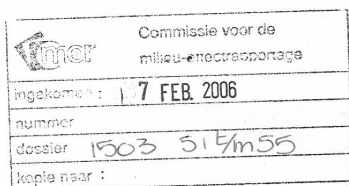 mer
Commissie voor de
milieu-effectrapportage
ingekomen : 17 FEB. 2006
nummer
dossier 1503 51 t/m 55
kopie naar :